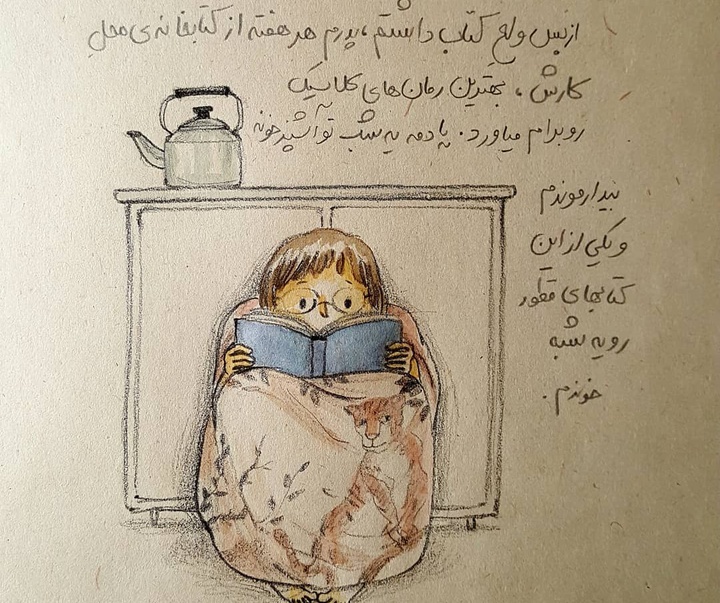 ازبس ولعِ کتاب داشتم، پدرم هر هفته از کتابخانه‌ی محلِ
کارش، بهترین رمان‌های کلاسیک
رو برام میاورد. یادمه یه شب تو آشپزخونه
بیدار موندم
و یکی از این
کتابهای قطور
رو یه شبه
خوندم.